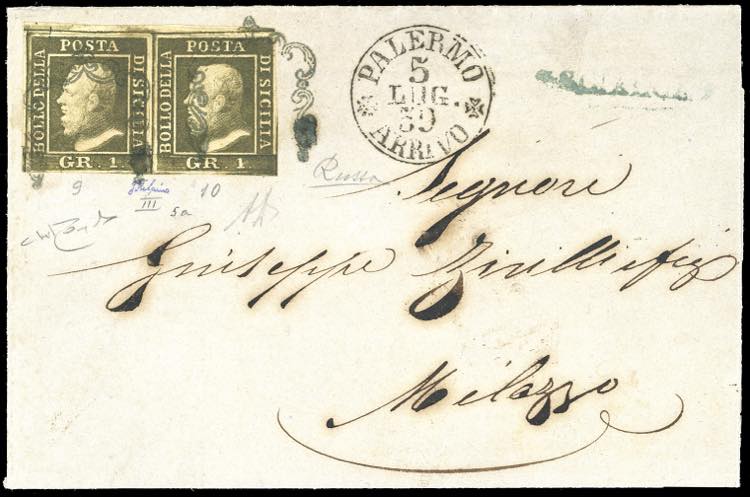 POSTA POSTA
BOLLO DELLA DI SICILIA BOLLO DELLA DI SICILIA
GR. 1 GR. 1
PALERMO
5
LUG.
59
ARRIVO
Russo
9 10
III
5a
Signore
Giuseppe
Milazzo